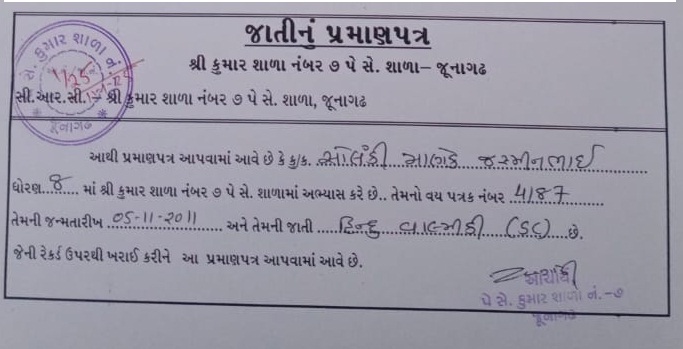 જાતીનું પ્રમાણપત્ર
શ્રી કુમાર શાળા નંબર ૭ પે સે. શાળા– જૂનાગઢ
સી.આર.સી. :– શ્રી કુમાર શાળા નંબર ૭ પે સે. શાળા, જૂનાગઢ
કુમાર શાળા નં.
જૂનાગઢ
આથી પ્રમાણપત્ર આપવામાં આવે છે કે કુ/ક. સોલંકી જસ્મીનભાઈ
ધોરણ 8 માં શ્રી કુમાર શાળા નંબર ૭ પે સે. શાળામાં અભ્યાસ કરે છે.. તેમનો વય પત્રક નંબર 4187
તેમની જન્મતારીખ 05-11-2011 અને તેમની જાતી હિન્દુ વાલ્મીકી (SC) છે.
જેની રેકર્ડ ઉપરથી ખરાઈ કરીને આ પ્રમાણપત્ર આપવામાં આવે છે.
આચાર્ય
પે સે. કુમાર શાળા નં.-૭
જૂનાગઢ